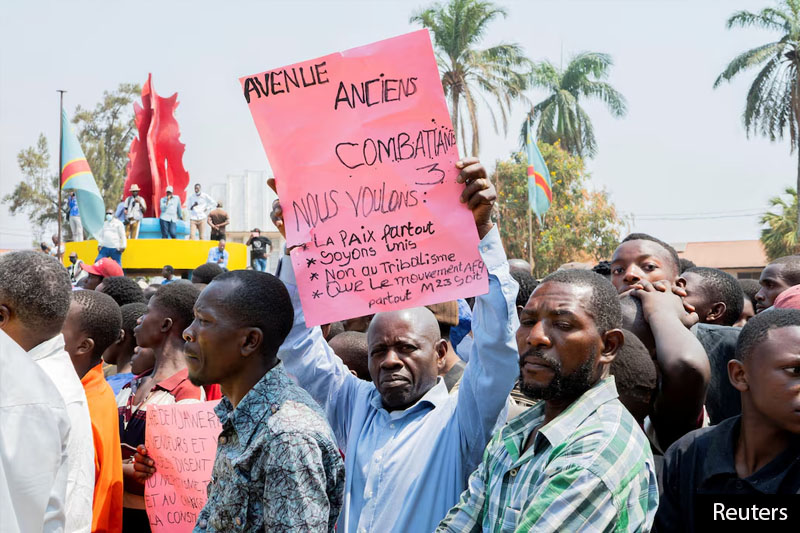 AVENUE
ANCIENS
COMBATTANTS
3
NOUS VOULONS :
* LA PAIX PARTOUT
* SOYONS UNIS
* NON AU TRIBALISME
* QUE LE MOUVEMENT AFC
SOIT
PARTOUT M23
DISENT
ET AU
LA CONST
Reuters